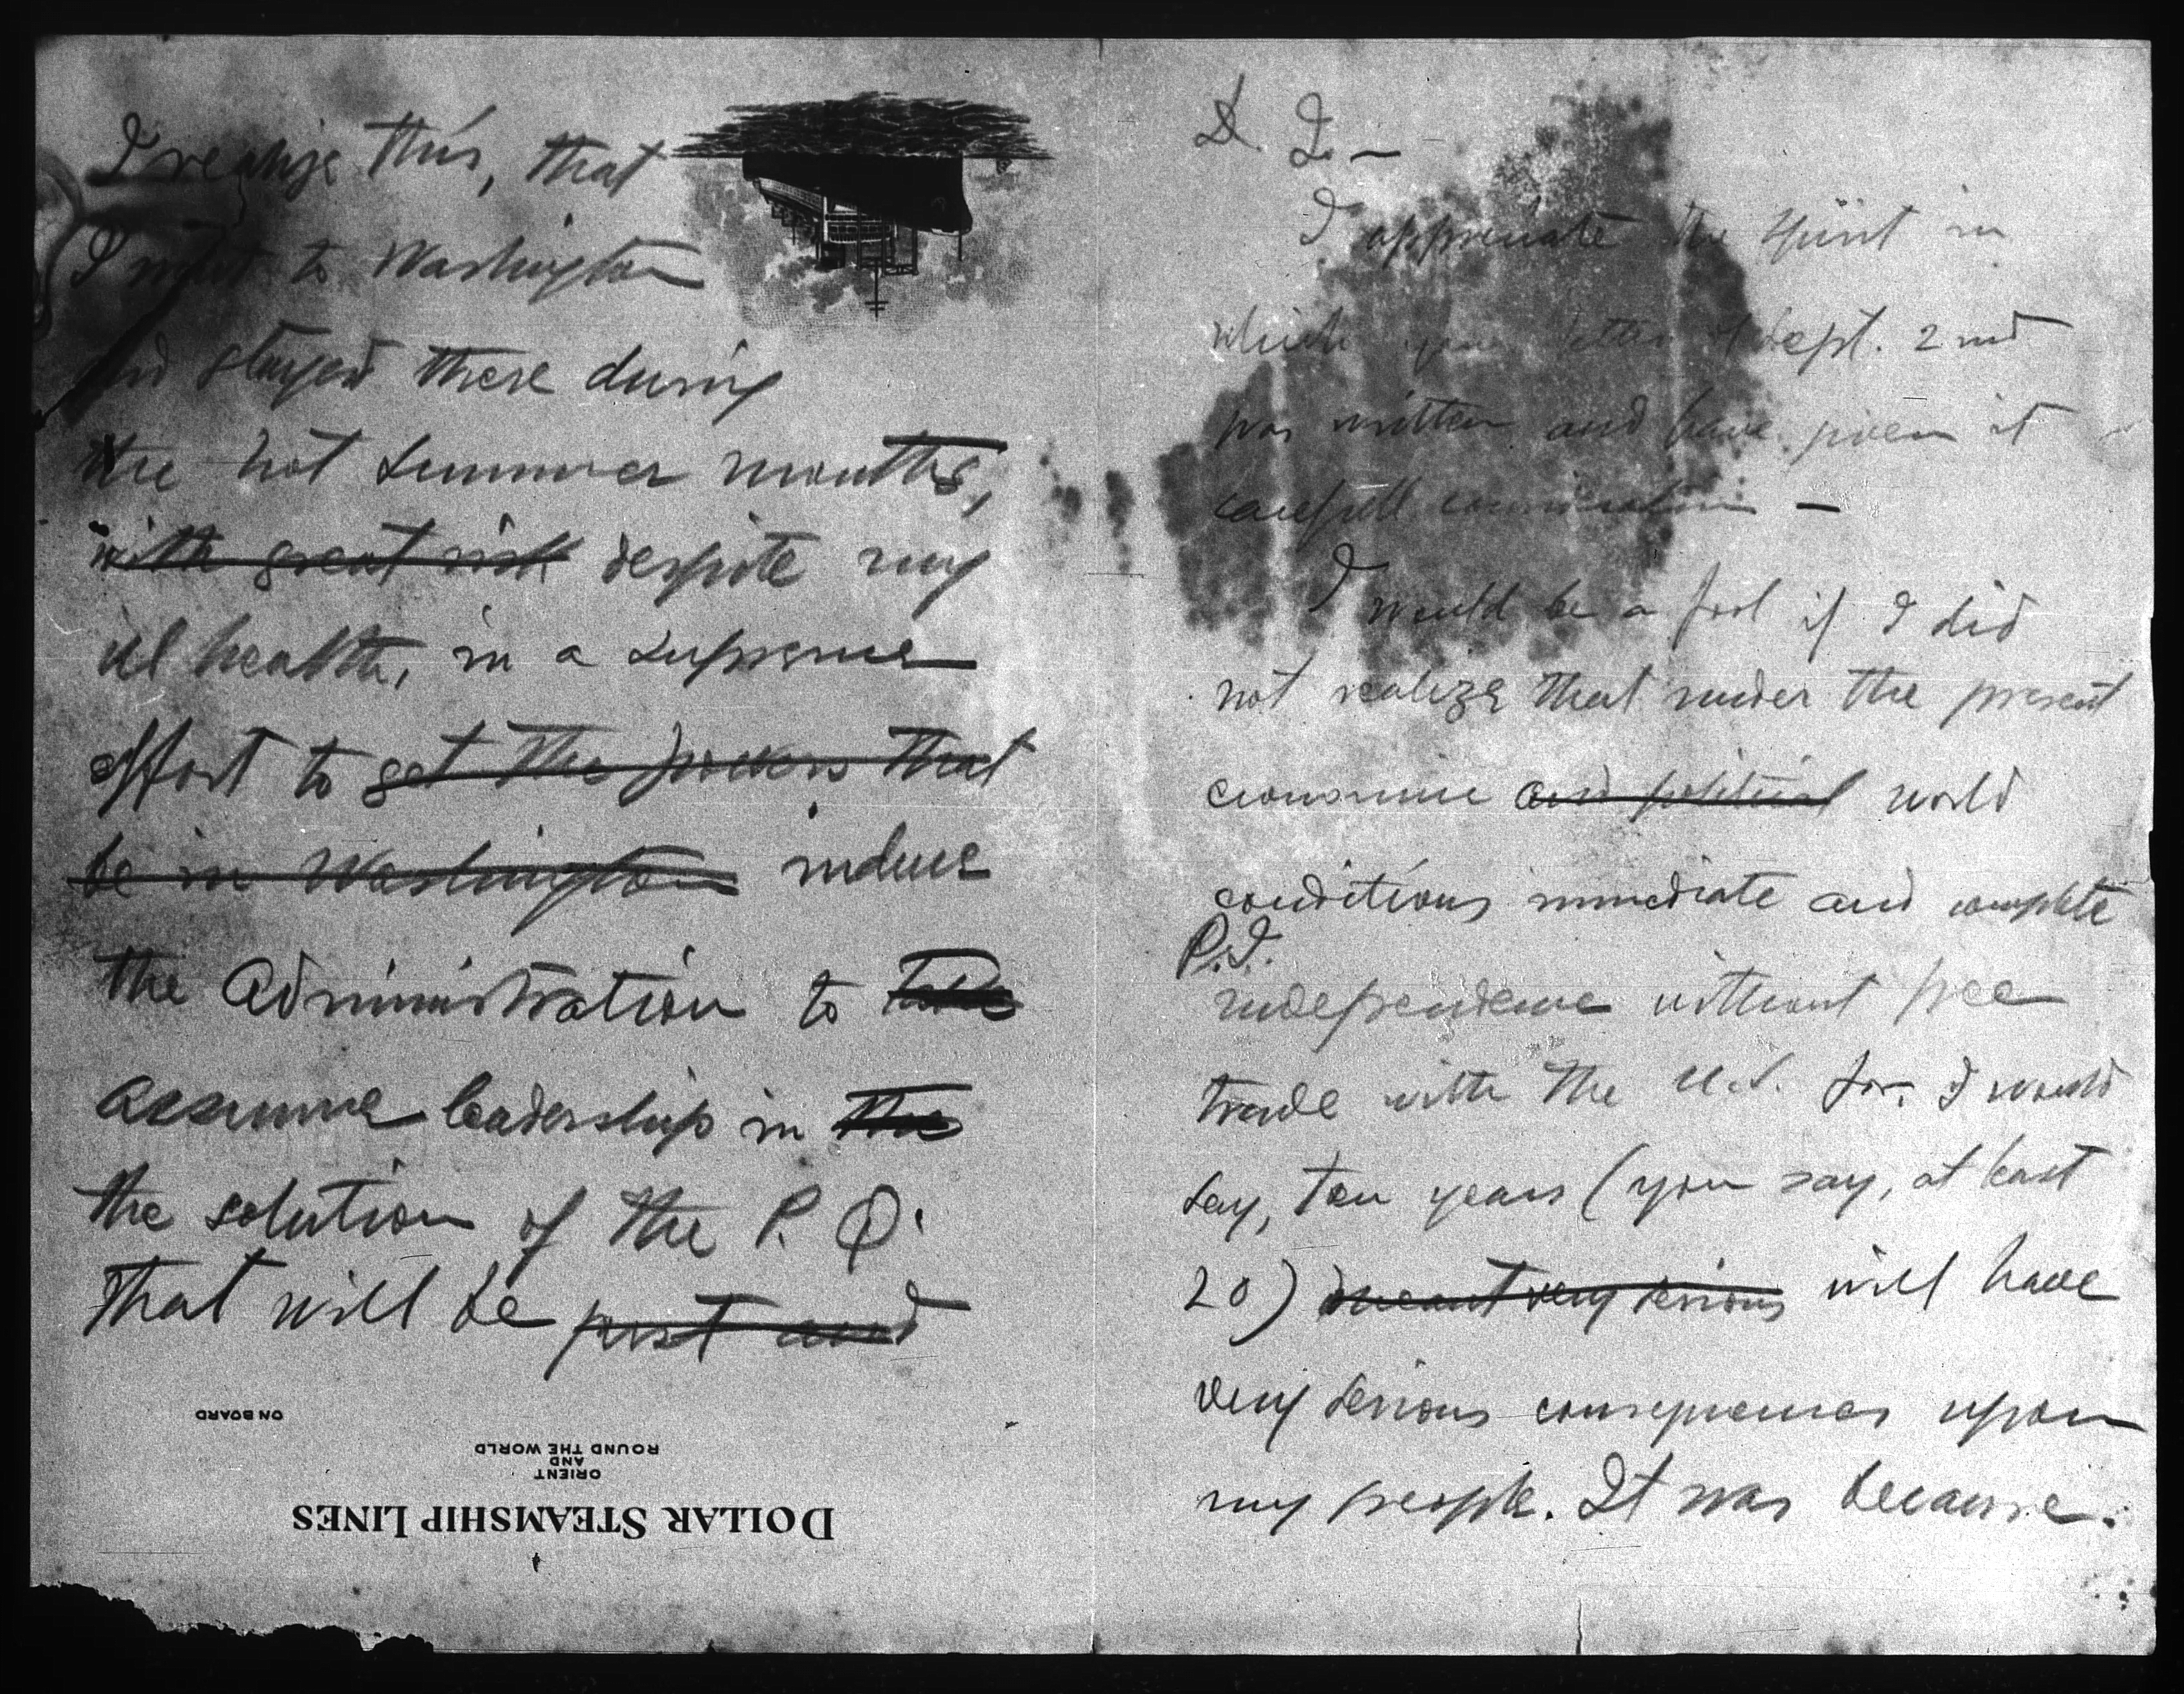 I appreciate the spirit in
which your letter of Sept. 2nd
was written and have given it
carefull consideration —
I would be a fool if I did
not realize that under the present
economic and political world
conditions immediate and complete
P.I.
independence without free
trade with the U.S. for, I would
say, ten years (you say, at least
20) meant very serious will have
very serious consequences upon
my people. It was because
I realize this, that
I went to Washington
and stayed there during
the hot summer months,
with great risk despite my
ill health, in a supreme
effort to get the powers that
be in Washington induce
the Administration to take
assume leadership in the
the solution of the P. Q.
that will be just and
ON BOARD
ORIENT
AND
ROUND THE WORLD
DOLLAR STEAMSHIP LINES